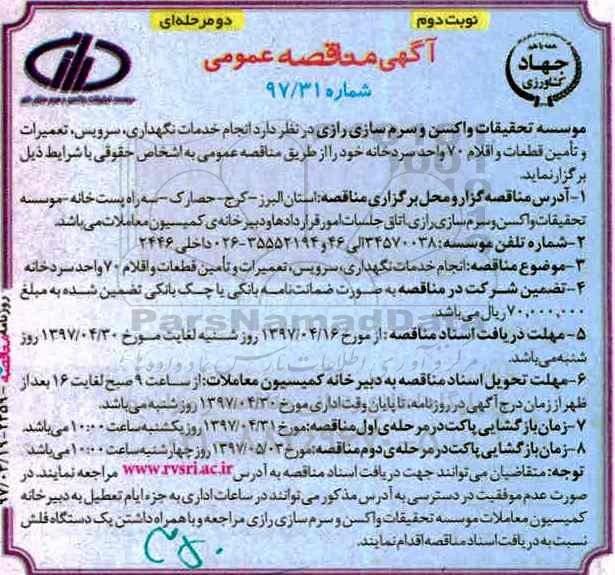 نوبت دوم
دو مرحله‌ای
همه با هم
جهاد
کشاورزی
آگهی مناقصه عمومی
شماره ۹۷/۳۱
موسسه تحقیقات واکسن و سرم سازی رازی در نظر دارد انجام خدمات نگهداری، سرویس، تعمیرات
و تأمین قطعات و اقلام ۷۰ واحد سردخانه خود را از طریق مناقصه عمومی به اشخاص حقوقی با شرایط ذیل
برگزار نماید.
۱-آدرس مناقصه گزار و محل برگزاری مناقصه: استان البرز-کرج-حصارک-سه راه پست خانه-موسسه
تحقیقات واکسن و سرم سازی رازی، اتاق جلسات امور قراردادها و دبیرخانه‌ی کمیسیون معاملات می‌باشد.
۲-شماره تلفن موسسه: ۳۴۵۷۰۰۳۸ الی ۴۶ و ۳۵۵۵۲۱۹۴-۰۲۶ داخلی ۲۴۴۶
۳-موضوع مناقصه: انجام خدمات نگهداری، سرویس، تعمیرات و تأمین قطعات و اقلام ۷۰ واحد سردخانه
۴-تضمین شرکت در مناقصه به صورت ضمانت‌نامه بانکی یا چک بانکی تضمین شده به مبلغ
۷۰,۰۰۰,۰۰۰ ریال می‌باشد.
۵-مهلت دریافت اسناد مناقصه: از مورخ ۱۳۹۷/۰۴/۱۶ روز شنبه لغایت مورخ ۱۳۹۷/۰۴/۳۰ روز
شنبه می‌باشد.
۶-مهلت تحویل اسناد مناقصه به دبیرخانه کمیسیون معاملات: از ساعت ۹ صبح لغایت ۱۶ بعد از
ظهر از زمان درج آگهی در روزنامه، تا پایان وقت اداری مورخ ۱۳۹۷/۰۴/۳۰ روز شنبه می‌باشد.
۷-زمان بازگشایی پاکت در مرحله‌ی اول مناقصه: مورخ ۱۳۹۷/۰۴/۳۱ روز یکشنبه ساعت ۱۰:۰۰ می‌باشد.
۸-زمان بازگشایی پاکت در مرحله‌ی دوم مناقصه: مورخ ۱۳۹۷/۰۵/۰۳ روز چهارشنبه ساعت ۱۰:۰۰ می‌باشد.
توجه: متقاضیان می‌توانند جهت دریافت اسناد مناقصه به آدرس www.rvsri.ac.ir مراجعه نمایند. در
صورت عدم موفقیت در دسترسی به آدرس مذکور می‌توانند در ساعات اداری به جزء ایام تعطیل به دبیرخانه
کمیسیون معاملات موسسه تحقیقات واکسن و سرم سازی رازی مراجعه و با همراه داشتن یک دستگاه فلش
نسبت به دریافت اسناد مناقصه اقدام نمایند.
ParsNamadData
روزنامه مناقصه